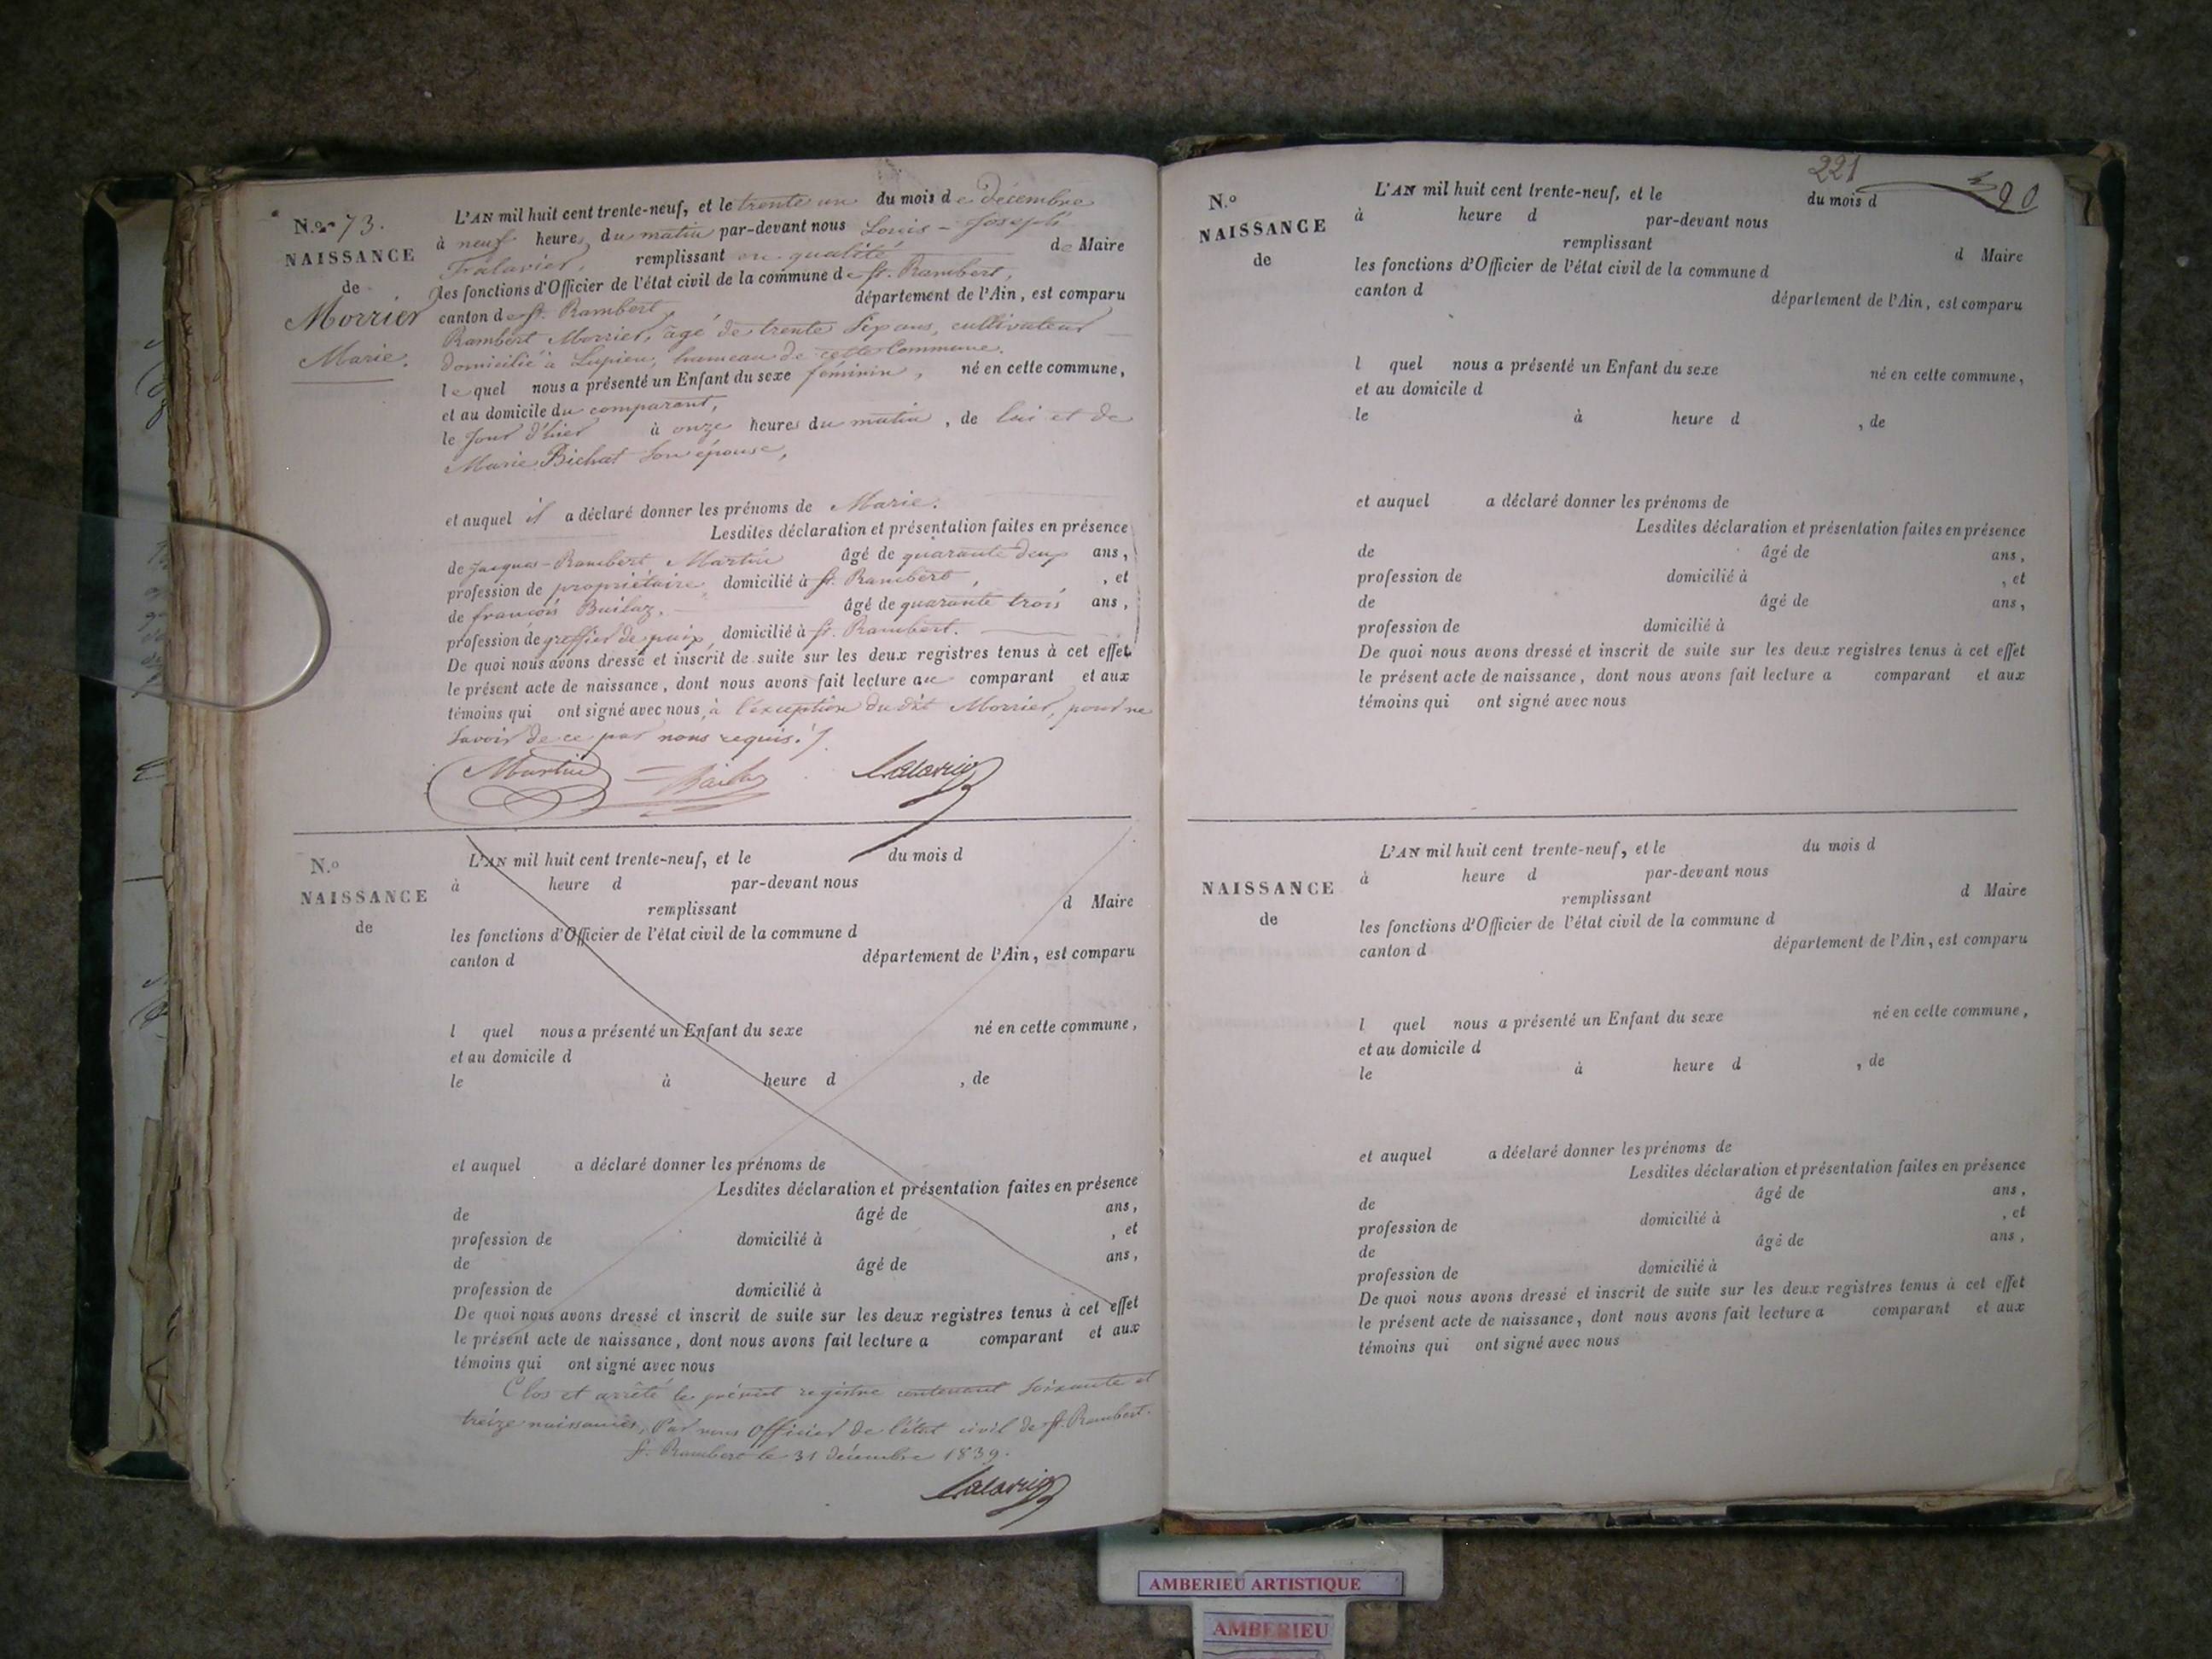 N.o 73.
NAISSANCE
de
Morrier
Marie.
L'AN mil huit cent trente-neuf, et le trente un du mois de décembre
à neuf heures du matin par-devant nous Louis-Joseph
remplissant en qualité de Maire
les fonctions d'Officier de l'état civil de la commune de St. Rambert,
canton de St. Rambert, département de l'Ain, est comparu
Rambert Morrier, âgé de trente six ans, cultivateur
domicilié à Lupieu, hameau de cette Commune.
lequel nous a présenté un Enfant du sexe féminin, né en cette commune,
et au domicile du comparant,
le jour d'hier à onze heures du matin, de lui et de
Marie Bichat son épouse,
et auquel il a déclaré donner les prénoms de Marie.
Lesdites déclaration et présentation faites en présence
de Jacques-Rambert Martin âgé de quarante deux ans,
profession de propriétaire, domicilié à St. Rambert, , et
de françois âgé de quarante trois ans,
profession de greffier de paix, domicilié à St. Rambert.
De quoi nous avons dressé et inscrit de suite sur les deux registres tenus à cet effet
le présent acte de naissance, dont nous avons fait lecture au comparant et aux
témoins qui ont signé avec nous, à l'exception du dit Morrier, pour ne
savoir de ce par nous requis.
Martin
N.o
NAISSANCE
de
L'AN mil huit cent trente-neuf, et le du mois d
à heure d par-devant nous
remplissant d Maire
les fonctions d'Officier de l'état civil de la commune d
canton d département de l'Ain, est comparu
l quel nous a présenté un Enfant du sexe né en cette commune,
et au domicile d
le à heure d , de
et auquel a déclaré donner les prénoms de
Lesdites déclaration et présentation faites en présence
de âgé de ans,
profession de domicilié à , et
de âgé de ans,
profession de domicilié à
De quoi nous avons dressé et inscrit de suite sur les deux registres tenus à cet effet
le présent acte de naissance, dont nous avons fait lecture a comparant et aux
témoins qui ont signé avec nous
Clos et arrêté le présent registre contenant soixante et
treize naissances, Par nous Officier de l'état civil de St. Rambert.
St. Rambert le 31 décembre 1839.
221
90
N.o
NAISSANCE
de
L'AN mil huit cent trente-neuf, et le du mois d
à heure d par-devant nous
remplissant d Maire
les fonctions d'Officier de l'état civil de la commune d
canton d département de l'Ain, est comparu
l quel nous a présenté un Enfant du sexe né en cette commune,
et au domicile d
le à heure d , de
et auquel a déclaré donner les prénoms de
Lesdites déclaration et présentation faites en présence
de âgé de ans,
profession de domicilié à , et
de âgé de ans,
profession de domicilié à
De quoi nous avons dressé et inscrit de suite sur les deux registres tenus à cet effet
le présent acte de naissance, dont nous avons fait lecture a comparant et aux
témoins qui ont signé avec nous
NAISSANCE
de
L'AN mil huit cent trente-neuf, et le du mois d
à heure d par-devant nous
remplissant d Maire
les fonctions d'Officier de l'état civil de la commune d
canton d département de l'Ain, est comparu
l quel nous a présenté un Enfant du sexe né en cette commune,
et au domicile d
le à heure d , de
et auquel a déelaré donner les prénoms de
Lesdites déclaration et présentation faites en présence
de âgé de ans,
profession de domicilié à , et
de âgé de ans,
profession de domicilié à
De quoi nous avons dressé et inscrit de suite sur les deux registres tenus à cet effet
le présent acte de naissance, dont nous avons fait lecture a comparant et aux
témoins qui ont signé avec nous
AMBERIEU ARTISTIQUE
AMBERIEU